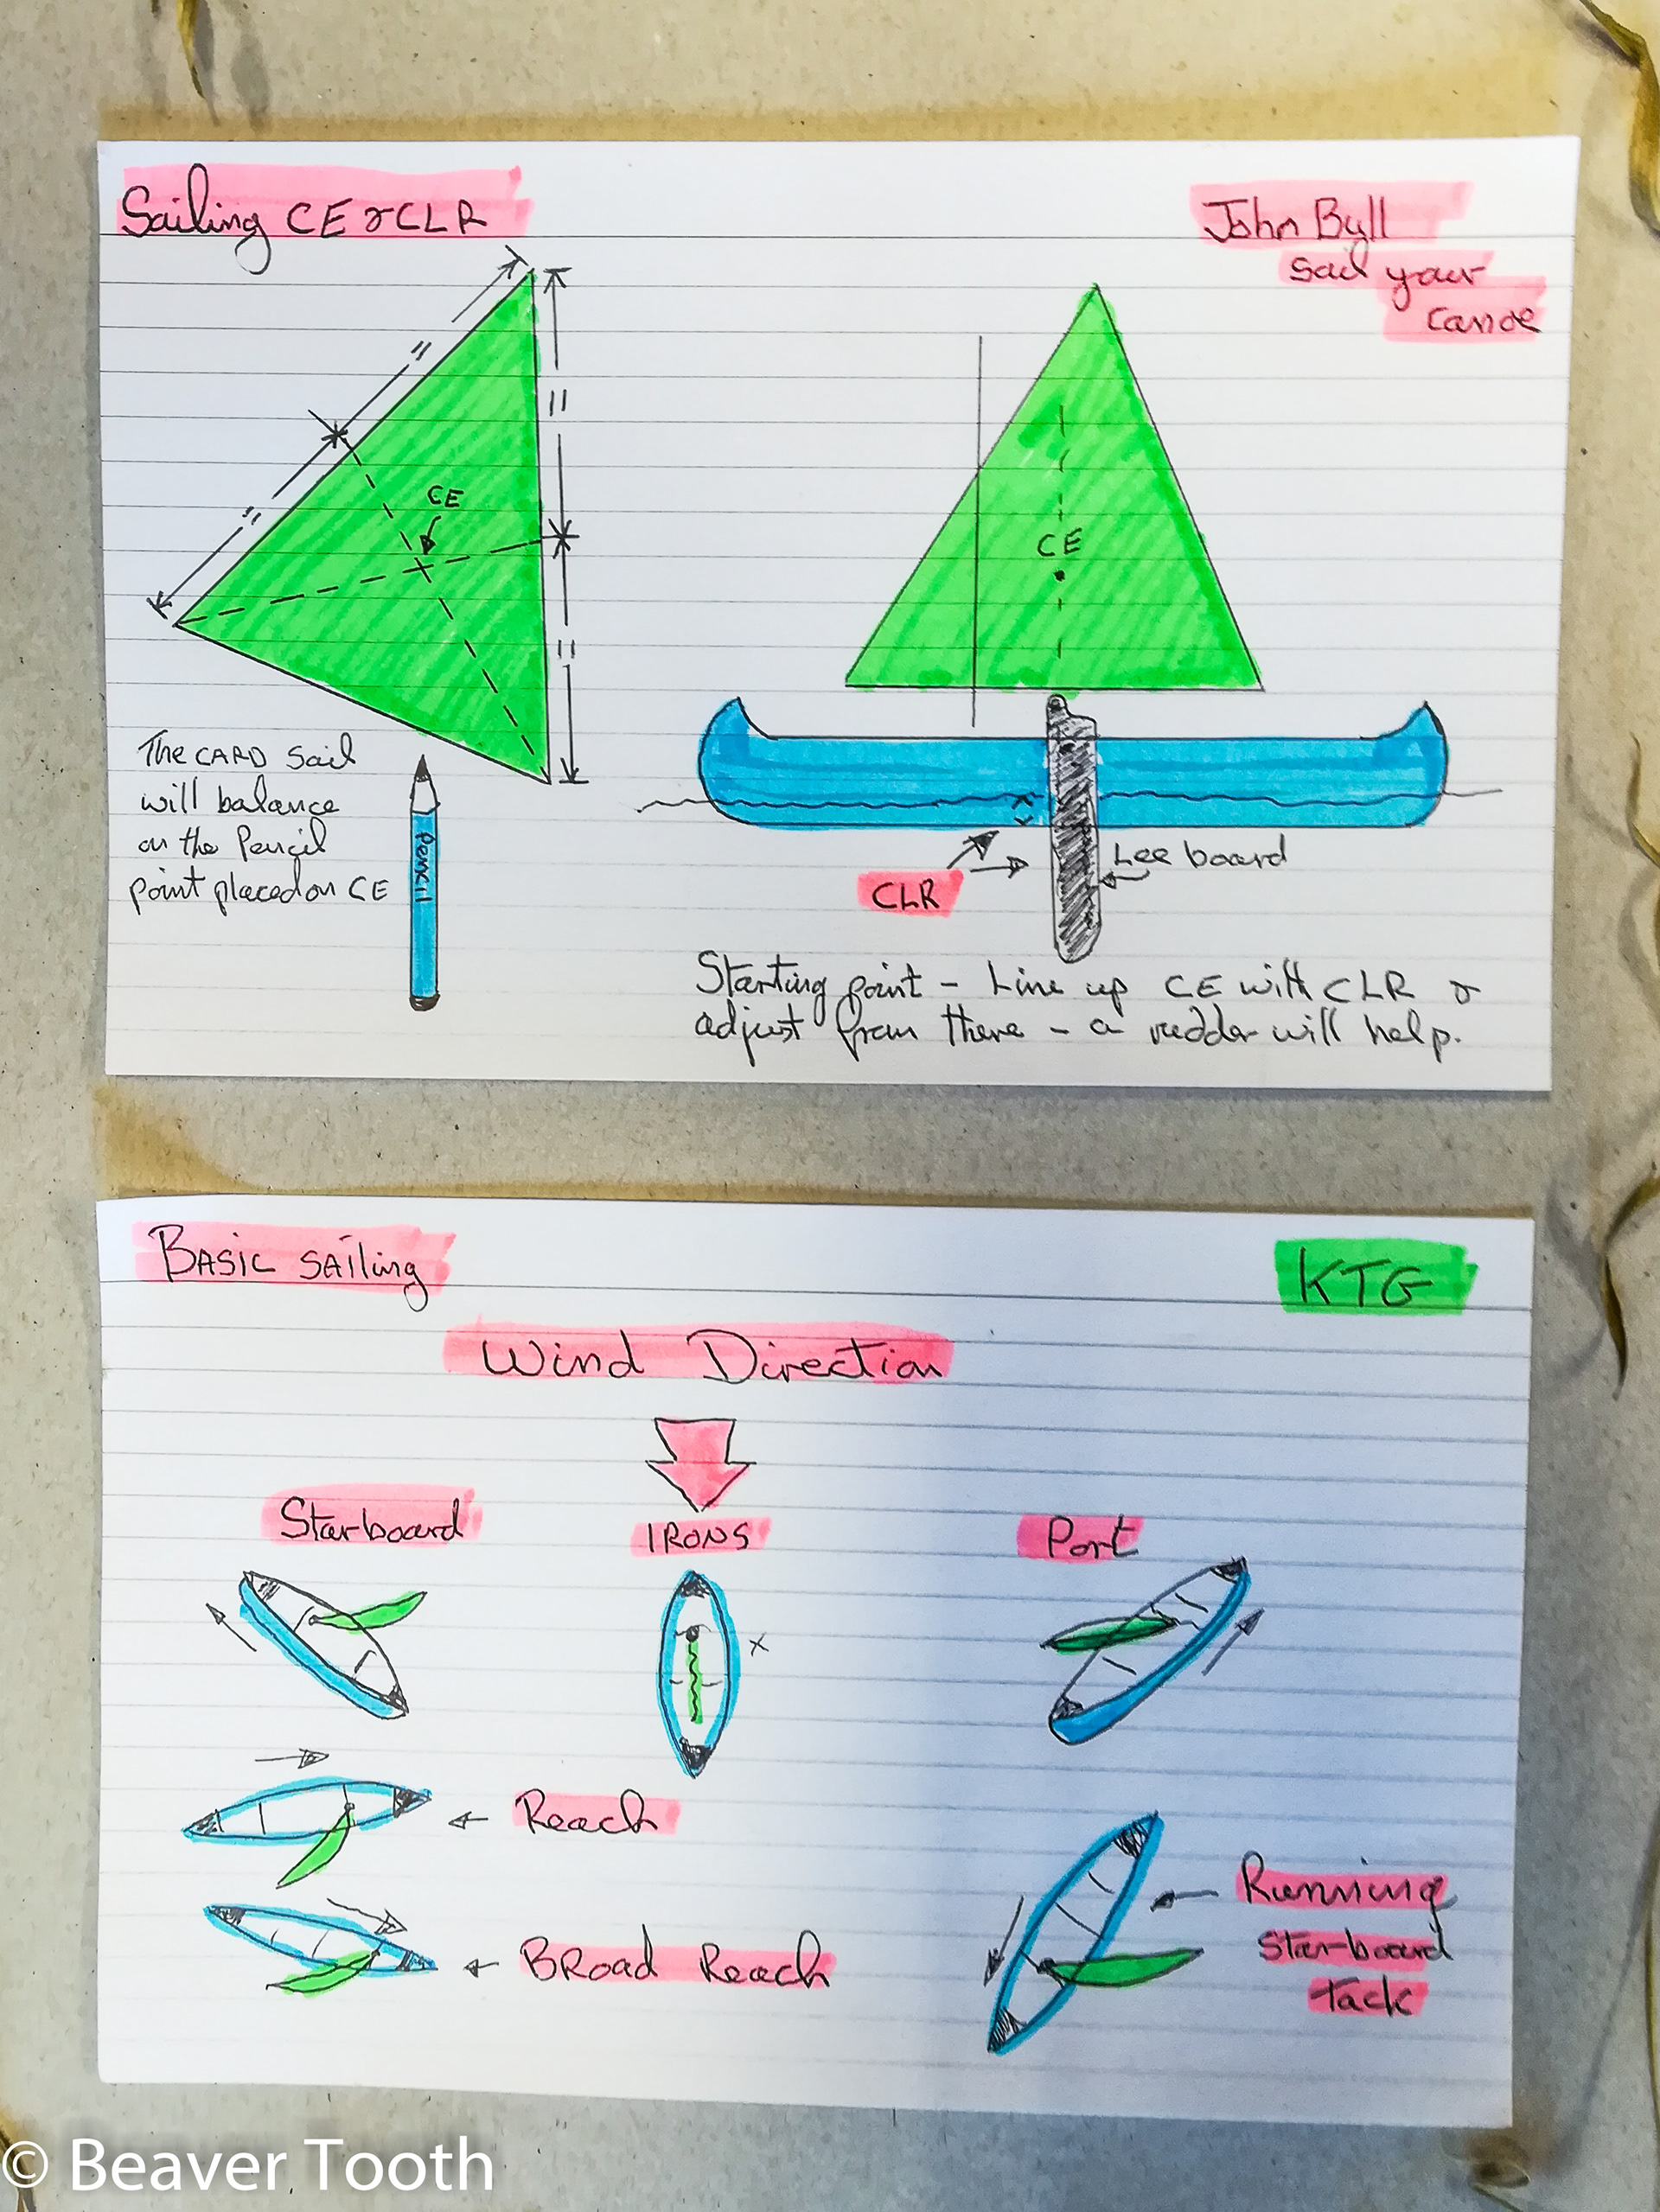 Sailing CE & CLR
John Bull
sail your
canoe
CE
CE
The CARD Sail
will balance
on the Pencil
point placed on CE
Pencil
CLR
Lee board
Starting point - Line up CE with CLR &
adjust from there - a rudder will help.
BASIC SAiling
KTG
Wind Direction
Starboard
IRONS
Port
x
Reach
Broad Reach
Running
Starboard
Tack
© Beaver Tooth